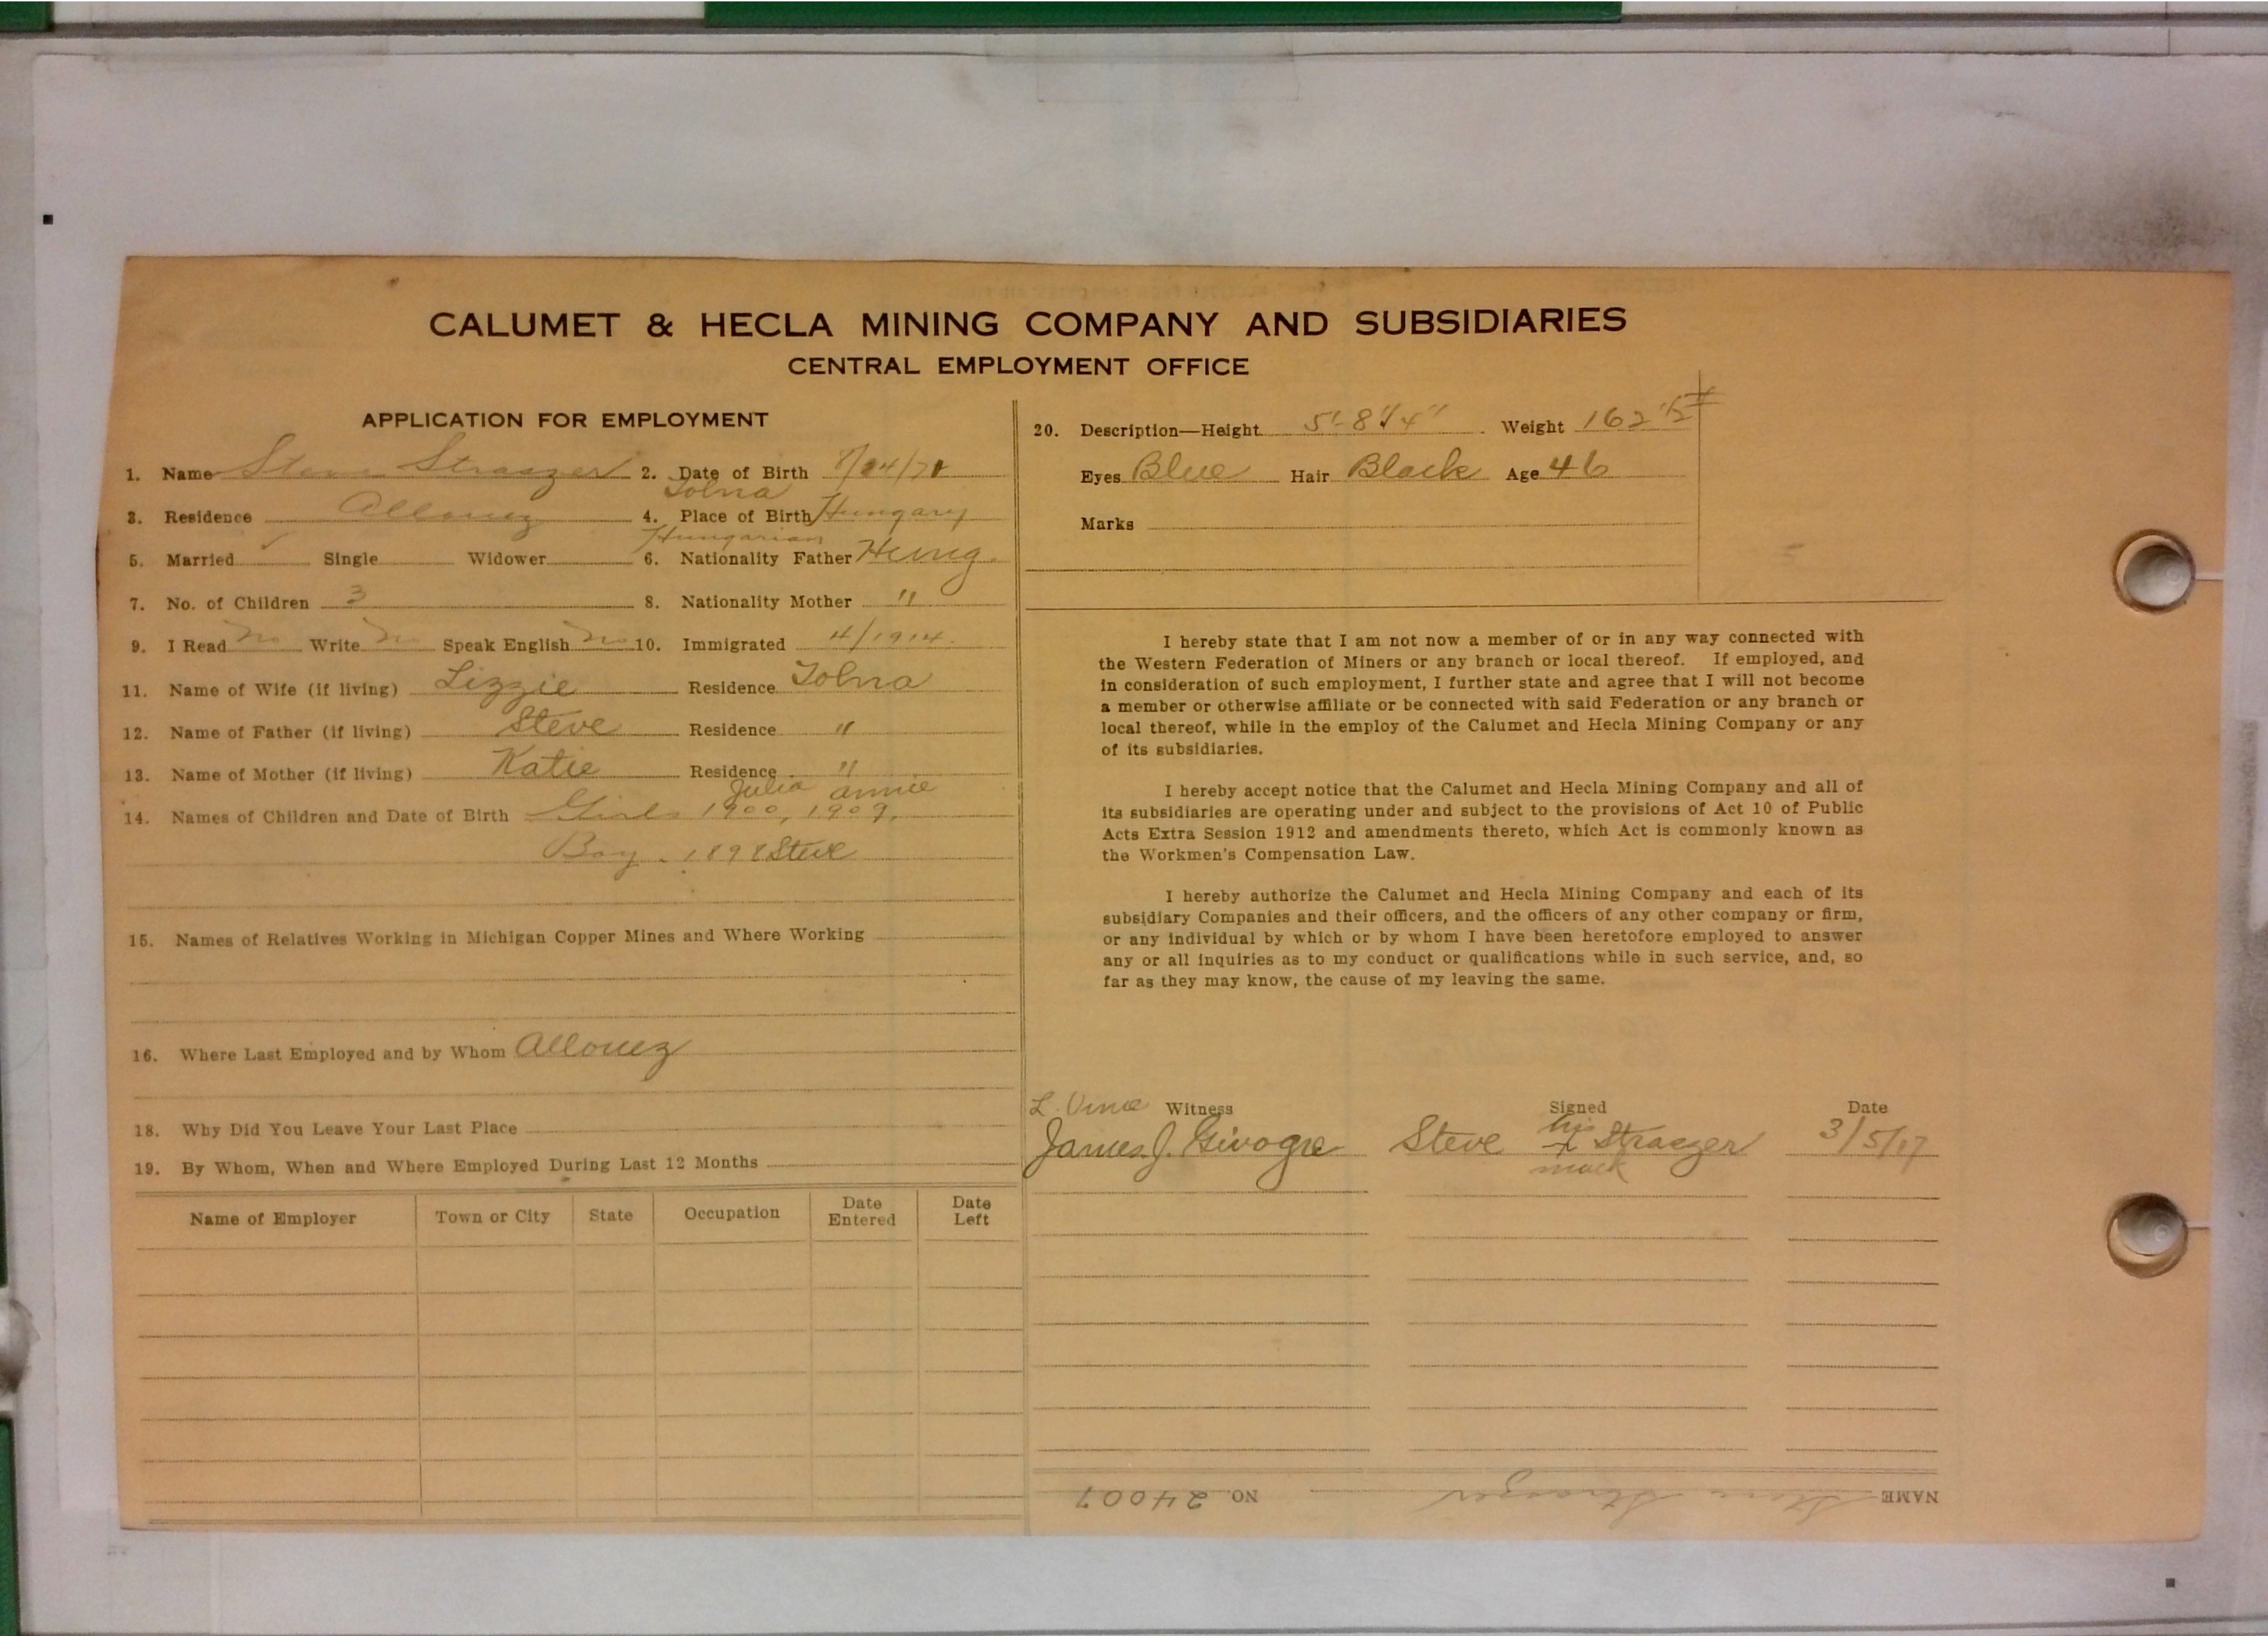 CALUMET & HECLA MINING COMPANY AND SUBSIDIARIES
CENTRAL EMPLOYMENT OFFICE
APPLICATION FOR EMPLOYMENT
1. Name Steve Straezer 2. Date of Birth
3. Residence Allouez 4. Place of Birth Tolna Hungary
5. Married ✓ Single Widower 6. Nationality Father Hungarian Hung.
7. No. of Children 3 8. Nationality Mother "
9. I Read No Write No Speak English No 10. Immigrated 4/1914.
11. Name of Wife (if living) Lizzie Residence Tolna
12. Name of Father (if living) Steve Residence "
13. Name of Mother (if living) Katie Residence "
Julia Annie
14. Names of Children and Date of Birth Girls 1900, 1909,
Boy - 1898 Steve
15. Names of Relatives Working in Michigan Copper Mines and Where Working
16. Where Last Employed and by Whom Allouez
18. Why Did You Leave Your Last Place
19. By Whom, When and Where Employed During Last 12 Months
Name of Employer Town or City State Occupation Date Entered Date Left
20. Description—Height 5'-8 1/4" Weight 162 1/2 #
Eyes Blue Hair Black Age 46
Marks
I hereby state that I am not now a member of or in any way connected with
the Western Federation of Miners or any branch or local thereof. If employed, and
in consideration of such employment, I further state and agree that I will not become
a member or otherwise affiliate or be connected with said Federation or any branch or
local thereof, while in the employ of the Calumet and Hecla Mining Company or any
of its subsidiaries.
I hereby accept notice that the Calumet and Hecla Mining Company and all of
its subsidiaries are operating under and subject to the provisions of Act 10 of Public
Acts Extra Session 1912 and amendments thereto, which Act is commonly known as
the Workmen's Compensation Law.
I hereby authorize the Calumet and Hecla Mining Company and each of its
subsidiary Companies and their officers, and the officers of any other company or firm,
or any individual by which or by whom I have been heretofore employed to answer
any or all inquiries as to my conduct or qualifications while in such service, and, so
far as they may know, the cause of my leaving the same.
L. Witness Signed Date
James J. Steve his x mark Straezer 3/5/17
NAME Steve Straezer NO. 24007